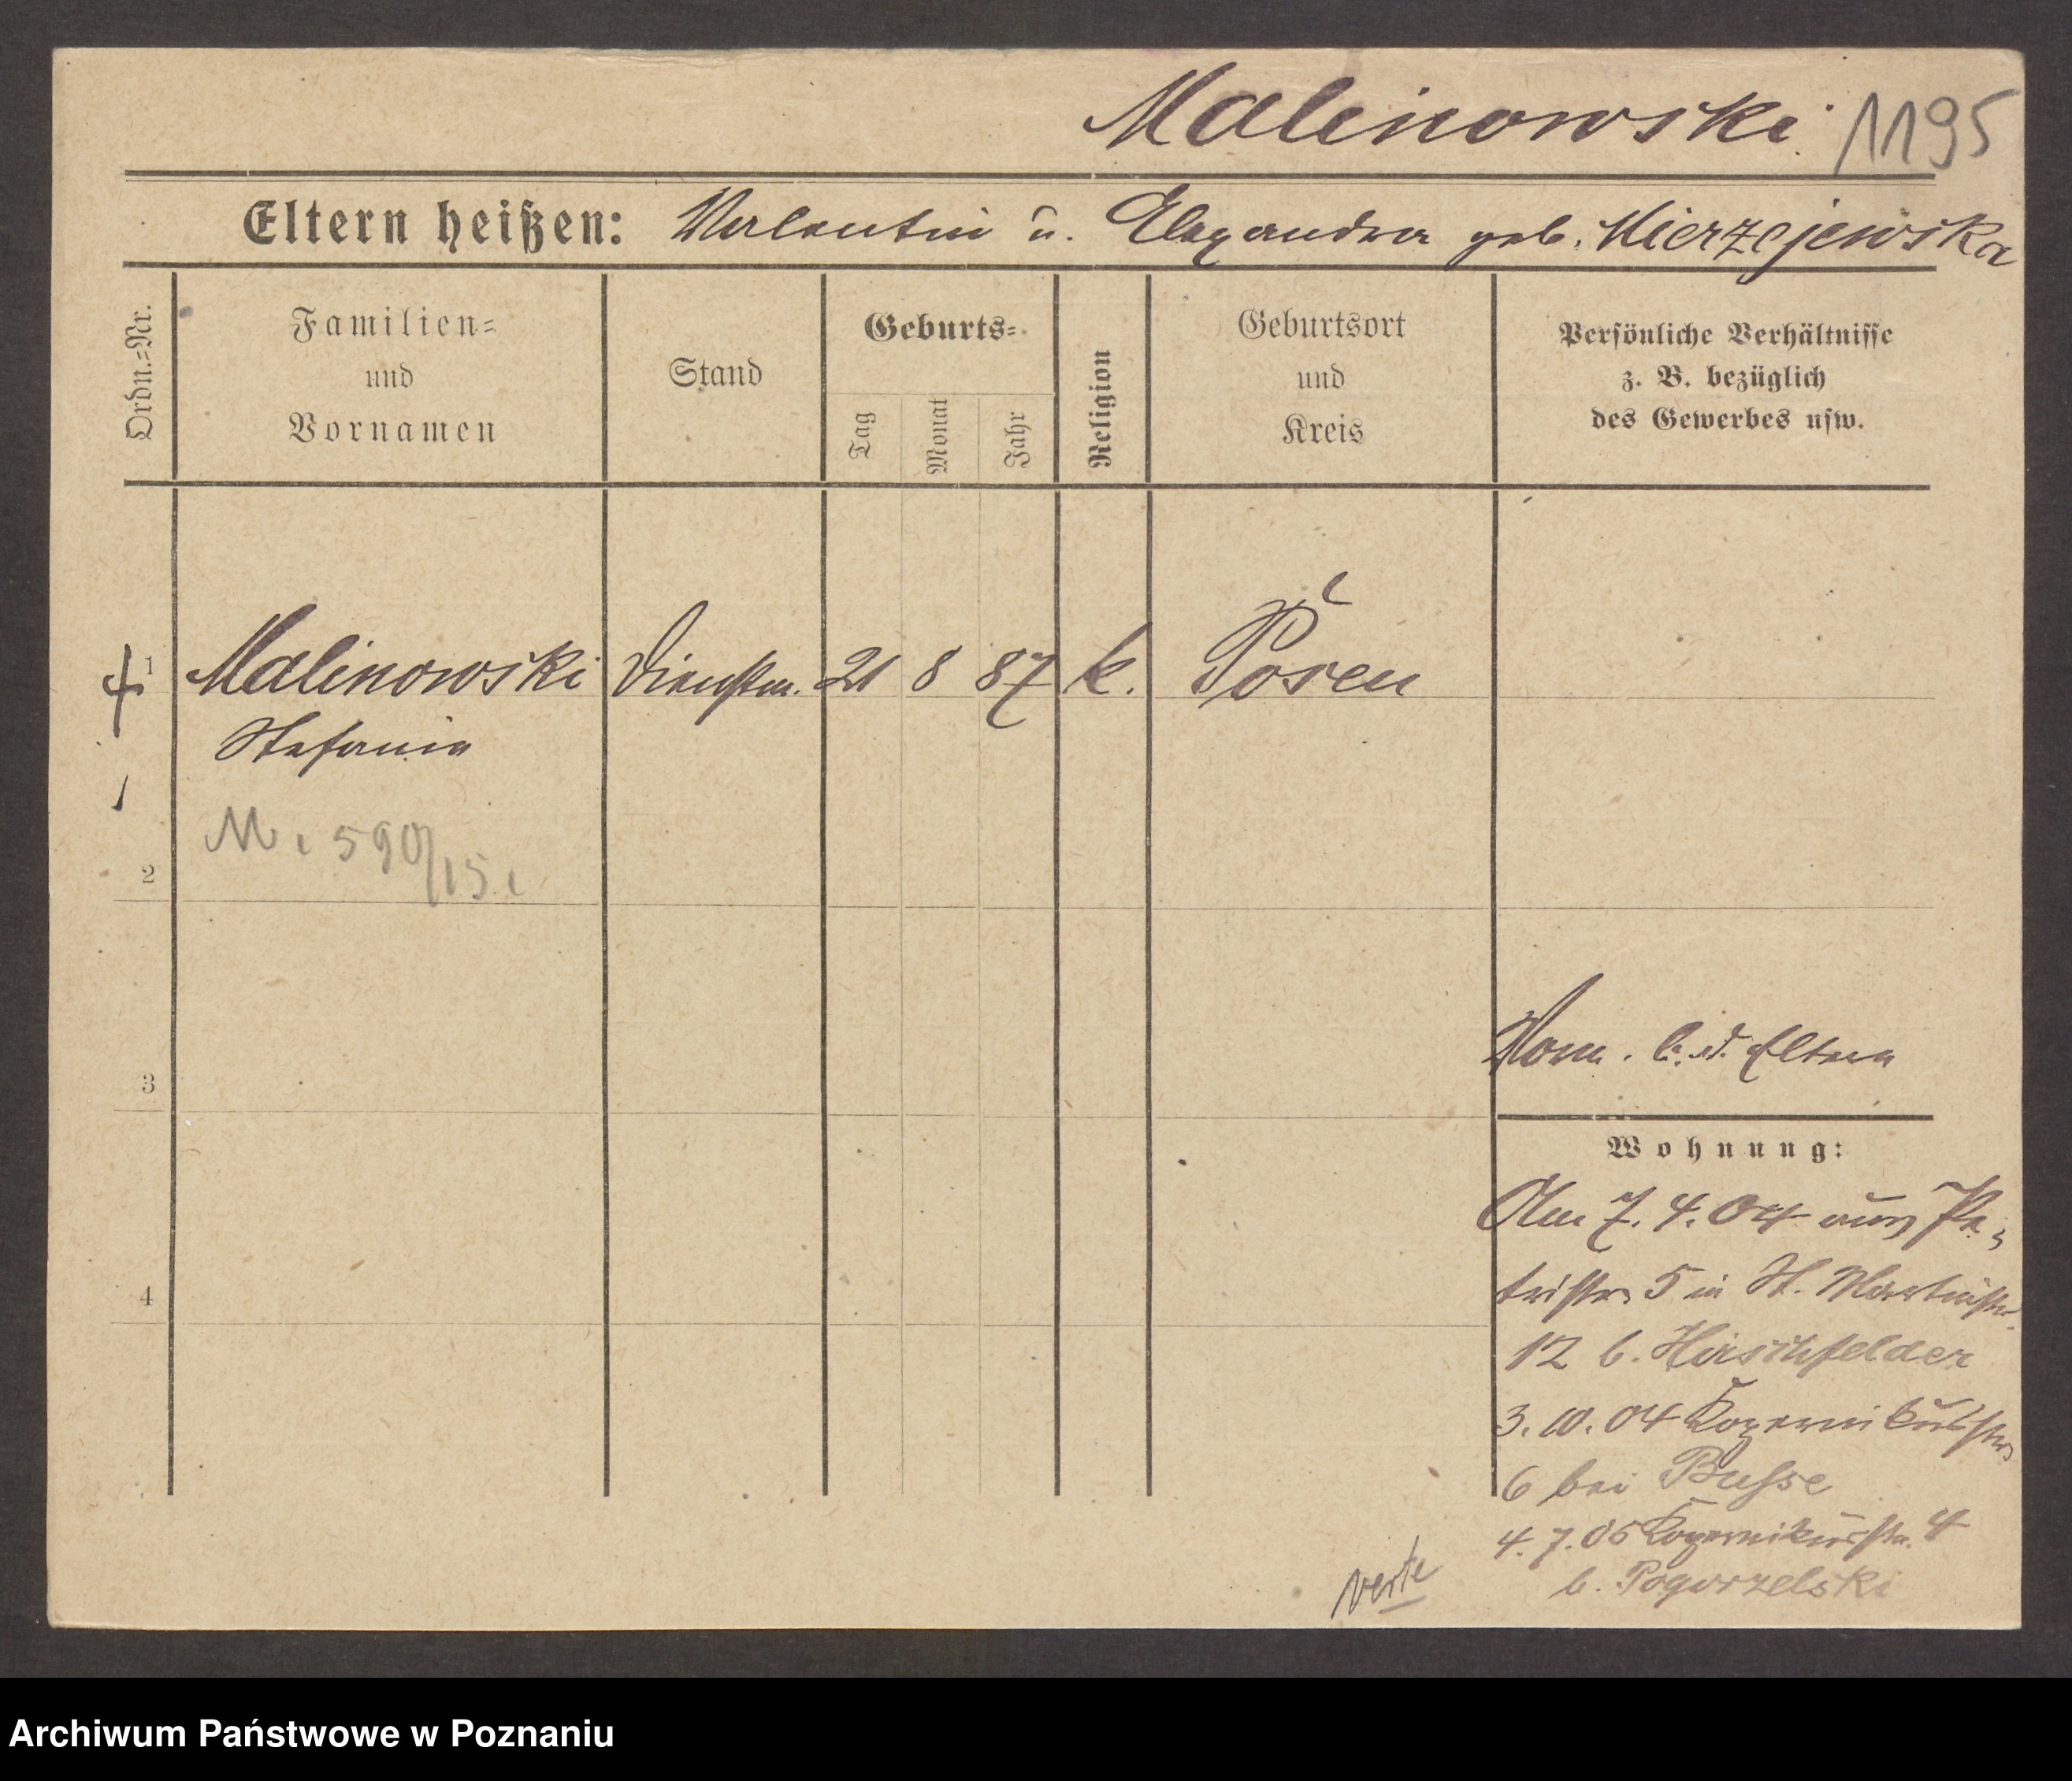 Malinowski
1195
Eltern heißen: Valentin u. Alexandra geb. Mierzejewska
Ordn.=Nr.
Familien=
und
Vornamen
Stand
Geburts=
Tag
Monat
Jahr
Religion
Geburtsort
und
Kreis
Persönliche Verhältnisse
z. B. bezüglich
des Gewerbes usw.
1 Malinowski Dienstm. 21 8 87 k. Posen
Stefania
M. 590/15.
2
3
Vorm. b. d. Eltern
Wohnung:
4
Am 7. 4. 04 aus Pe-
tristr. 5 in St. Martinstr.
12 b. Hirschfelder
3. 10. 04 Kopernikusstr.
6 bei Busse
4. 7. 05 Kopernikusstr. 4
b. Pogorzelski
verte
Archiwum Państwowe w Poznaniu